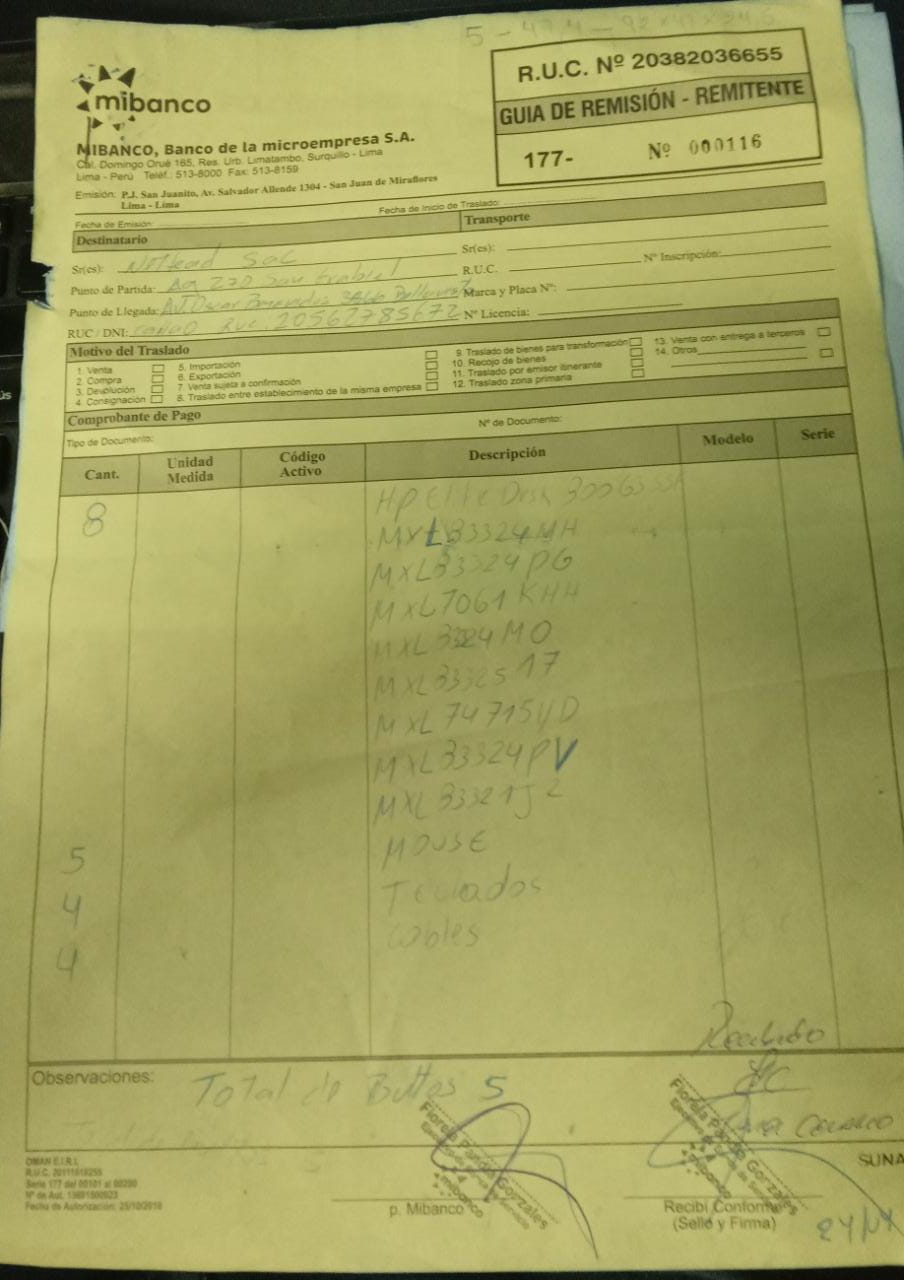 mibanco
MIBANCO, Banco de la microempresa S.A.
Cal. Domingo Orué 165, Res. Urb. Limatambo, Surquillo - Lima
Lima - Perú Teléf.: 513-8000 Fax: 513-8159
Emisión: P.J. San Juanito, Av. Salvador Allende 1304 - San Juan de Miraflores
Lima - Lima
R.U.C. Nº 20382036655
GUIA DE REMISIÓN - REMITENTE
177- Nº 000116
Fecha de Emisión:
Fecha de Inicio de Traslado:
Destinatario
Transporte
Sr(es): SAC
Sr(es):
Punto de Partida: Ag 270 San
R.U.C. Nº Inscripción:
Punto de Llegada: AV. Oscar
Marca y Placa Nº:
RUC / DNI: RUC: 20562785672
Nº Licencia:
Motivo del Traslado
1. Venta
2. Compra
3. Devolución
4. Consignación
5. Importación
6. Exportación
7. Venta sujeta a confirmación
8. Traslado entre establecimiento de la misma empresa
9. Traslado de bienes para transformación
10. Recojo de bienes
11. Traslado por emisor itinerante
12. Traslado zona primaria
13. Venta con entrega a terceros
14. Otros
Comprobante de Pago
Tipo de Documento:
Nº de Documento:
Cant. Unidad Medida Código Activo Descripción Modelo Serie
8 HP Elite Desk
MXL33324MH
MXL33324PG
MXL7061KHH
MXL3324MO
MXL3332517
MXL74715VD
MXL33324PV
MXL33321J2
5 MOUSE
4 Teclados
4 Cables
Recibido
Observaciones: Total de Bultos 5
Fiorela Panda Gonzales
mibanco
Fiorela Panda Gonzales
mibanco
OMAN E.I.R.L
Serie 177 del 00101 al 00200
Fecha de Autorización: 25/10/2018
p. Mibanco
Recibí Conforme
(Sello y Firma)
SUNA